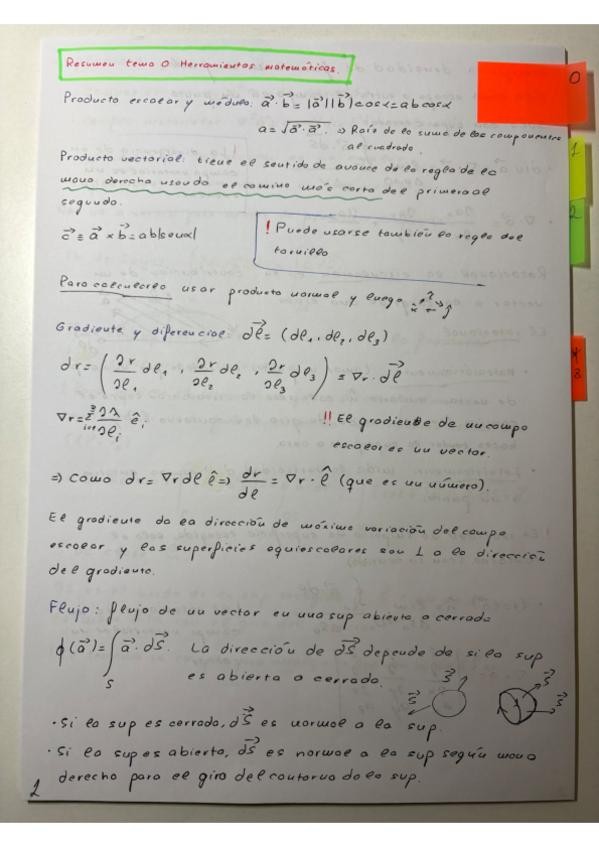 Resumen tema 0 Herramientas matemáticas.
0
Producto escalar y módulo: a⃗·b⃗ = |a⃗||b⃗|cosα = ab cosα
a = √(a⃗·a⃗). ⇒ Raíz de la suma de las componentes
al cuadrado.
1
Producto vectorial: tiene el sentido de avance de la regla de la
mano derecha usando el camino más corto del primero al
segundo.
2
c⃗ ≡ a⃗ × b⃗ = ab|senα|
! Puede usarse también la regla del
tornillo
Para calcularlo usar producto normal y luego
Gradiente y diferencial: dl⃗ = (dl₁, dl₂, dl₃)
dr = (∂r/∂l₁ dl₁, ∂r/∂l₂ dl₂, ∂r/∂l₃ dl₃) = ∇r · dl⃗
3
∇r = Σ³ᵢ₌₁ ∂λ/∂lᵢ êᵢ
!! El gradiente de un campo
escalar es un vector.
⇒ Como dr = ∇r dl ê ⇒ dr/dl = ∇r · ê (que es un número).
El gradiente da la dirección de máxima variación del campo
escalar y las superficies equiescalares son ⊥ a la direcció
del gradiente.
Flujo: flujo de un vector en una sup abierta o cerrada
ϕ(a⃗) = ∫S a⃗ · dS⃗. La dirección de dS⃗ depende de si la sup
es abierta o cerrada.
S⃗ S⃗ S⃗ S⃗
· Si la sup es cerrada, dS⃗ es normal a la sup.
· Si la sup es abierta, dS⃗ es normal a la sup según mano
derecha para el giro del contorno de la sup.
1